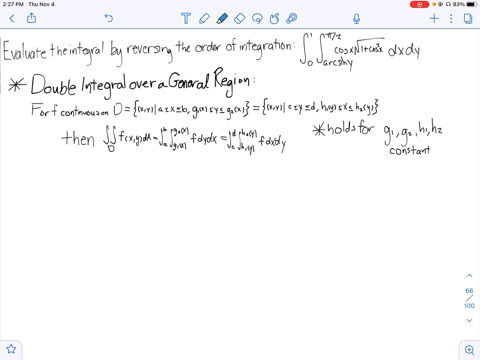 2:27 PM Thu Nov 4
83%
Evaluate the integral by reversing the order of integration: ∫₀¹ ∫_{arcsiny}^{π/2} cosx√(1+cos²x) dxdy
* Double Integral over a General Region:
For f continuous on D = {(x,y) | a≤x≤b, g₁(x)≤y≤g₂(x)} = {(x,y) | c≤y≤d, h₁(y)≤x≤h₂(y)}
then ∬_D f(x,y)dA = ∫_a^b ∫_{g₁(x)}^{g₂(x)} f dydx = ∫_c^d ∫_{h₁(y)}^{h₂(y)} f dxdy
* holds for g₁, g₂, h₁, h₂
constant
66
/
100